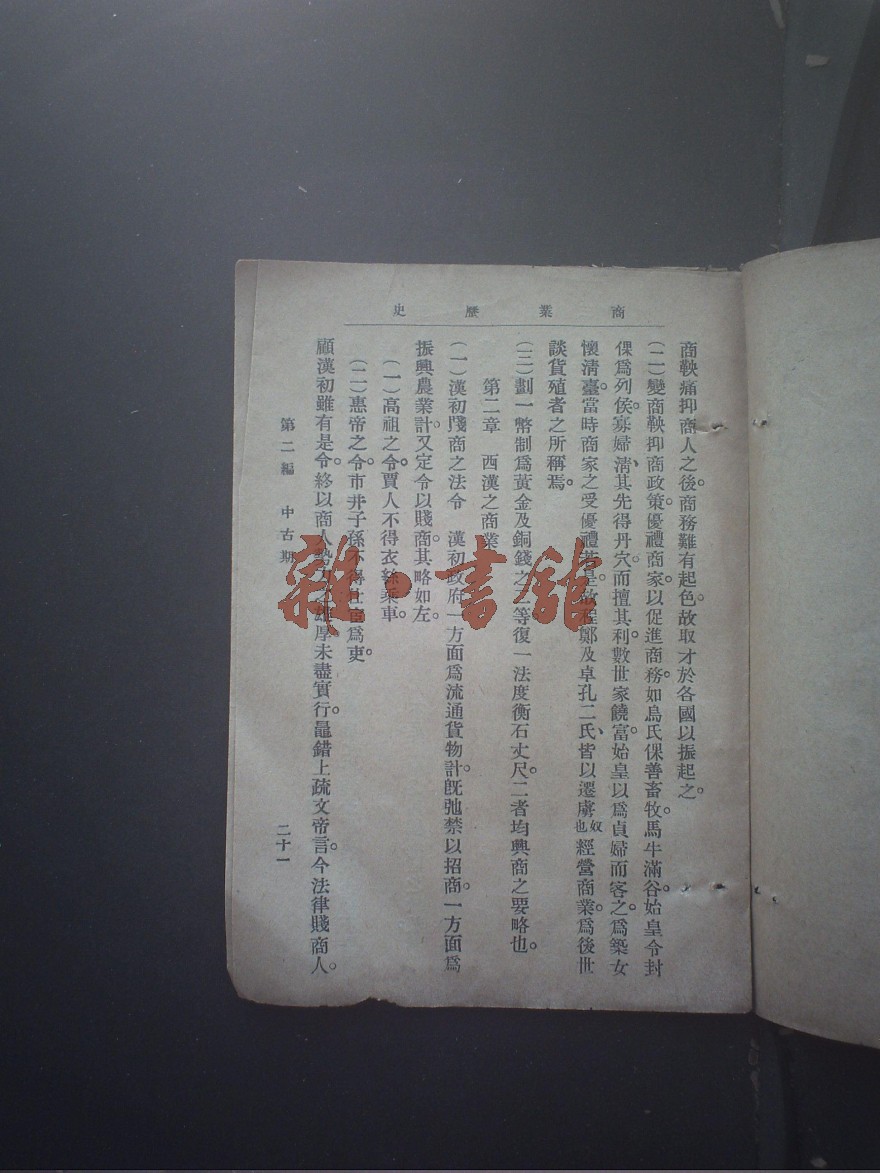 商業歷史
商鞅痛抑商人之後。商務難有起色。故取才於各國以振起之。
(二)變商鞅抑商政策。優禮商家。以促進商務。如烏氏倮善畜牧。馬牛滿谷。始皇令封
倮爲列侯。寡婦清、其先得丹穴。而擅其利。數世家饒富。始皇以爲貞婦而客之。爲築女
懷清臺。當時商家之受優禮若是。故程鄭及卓孔二氏、皆以遷虜奴也經營商業。爲後世
談貨殖者之所稱焉。
(三)劃一幣制爲黃金及銅錢之二等復一法度衡石丈尺。二者均興商之要略也。
第二章 西漢之商業
(一)漢初賤商之法令 漢初政府一方面爲流通貨物計。旣弛禁以招商。一方面爲
振興農業計。又定令以賤商。其略如左。
(一)高祖之令。賈人不得衣絲乘車。
(二)惠帝之令。市井子孫不得仕宦爲吏。
顧漢初雖有是令。終以商人勢力雄厚。未盡實行。鼂錯上疏文帝言。今法律賤商人。
第二編 中古期
二十一
雜·書館